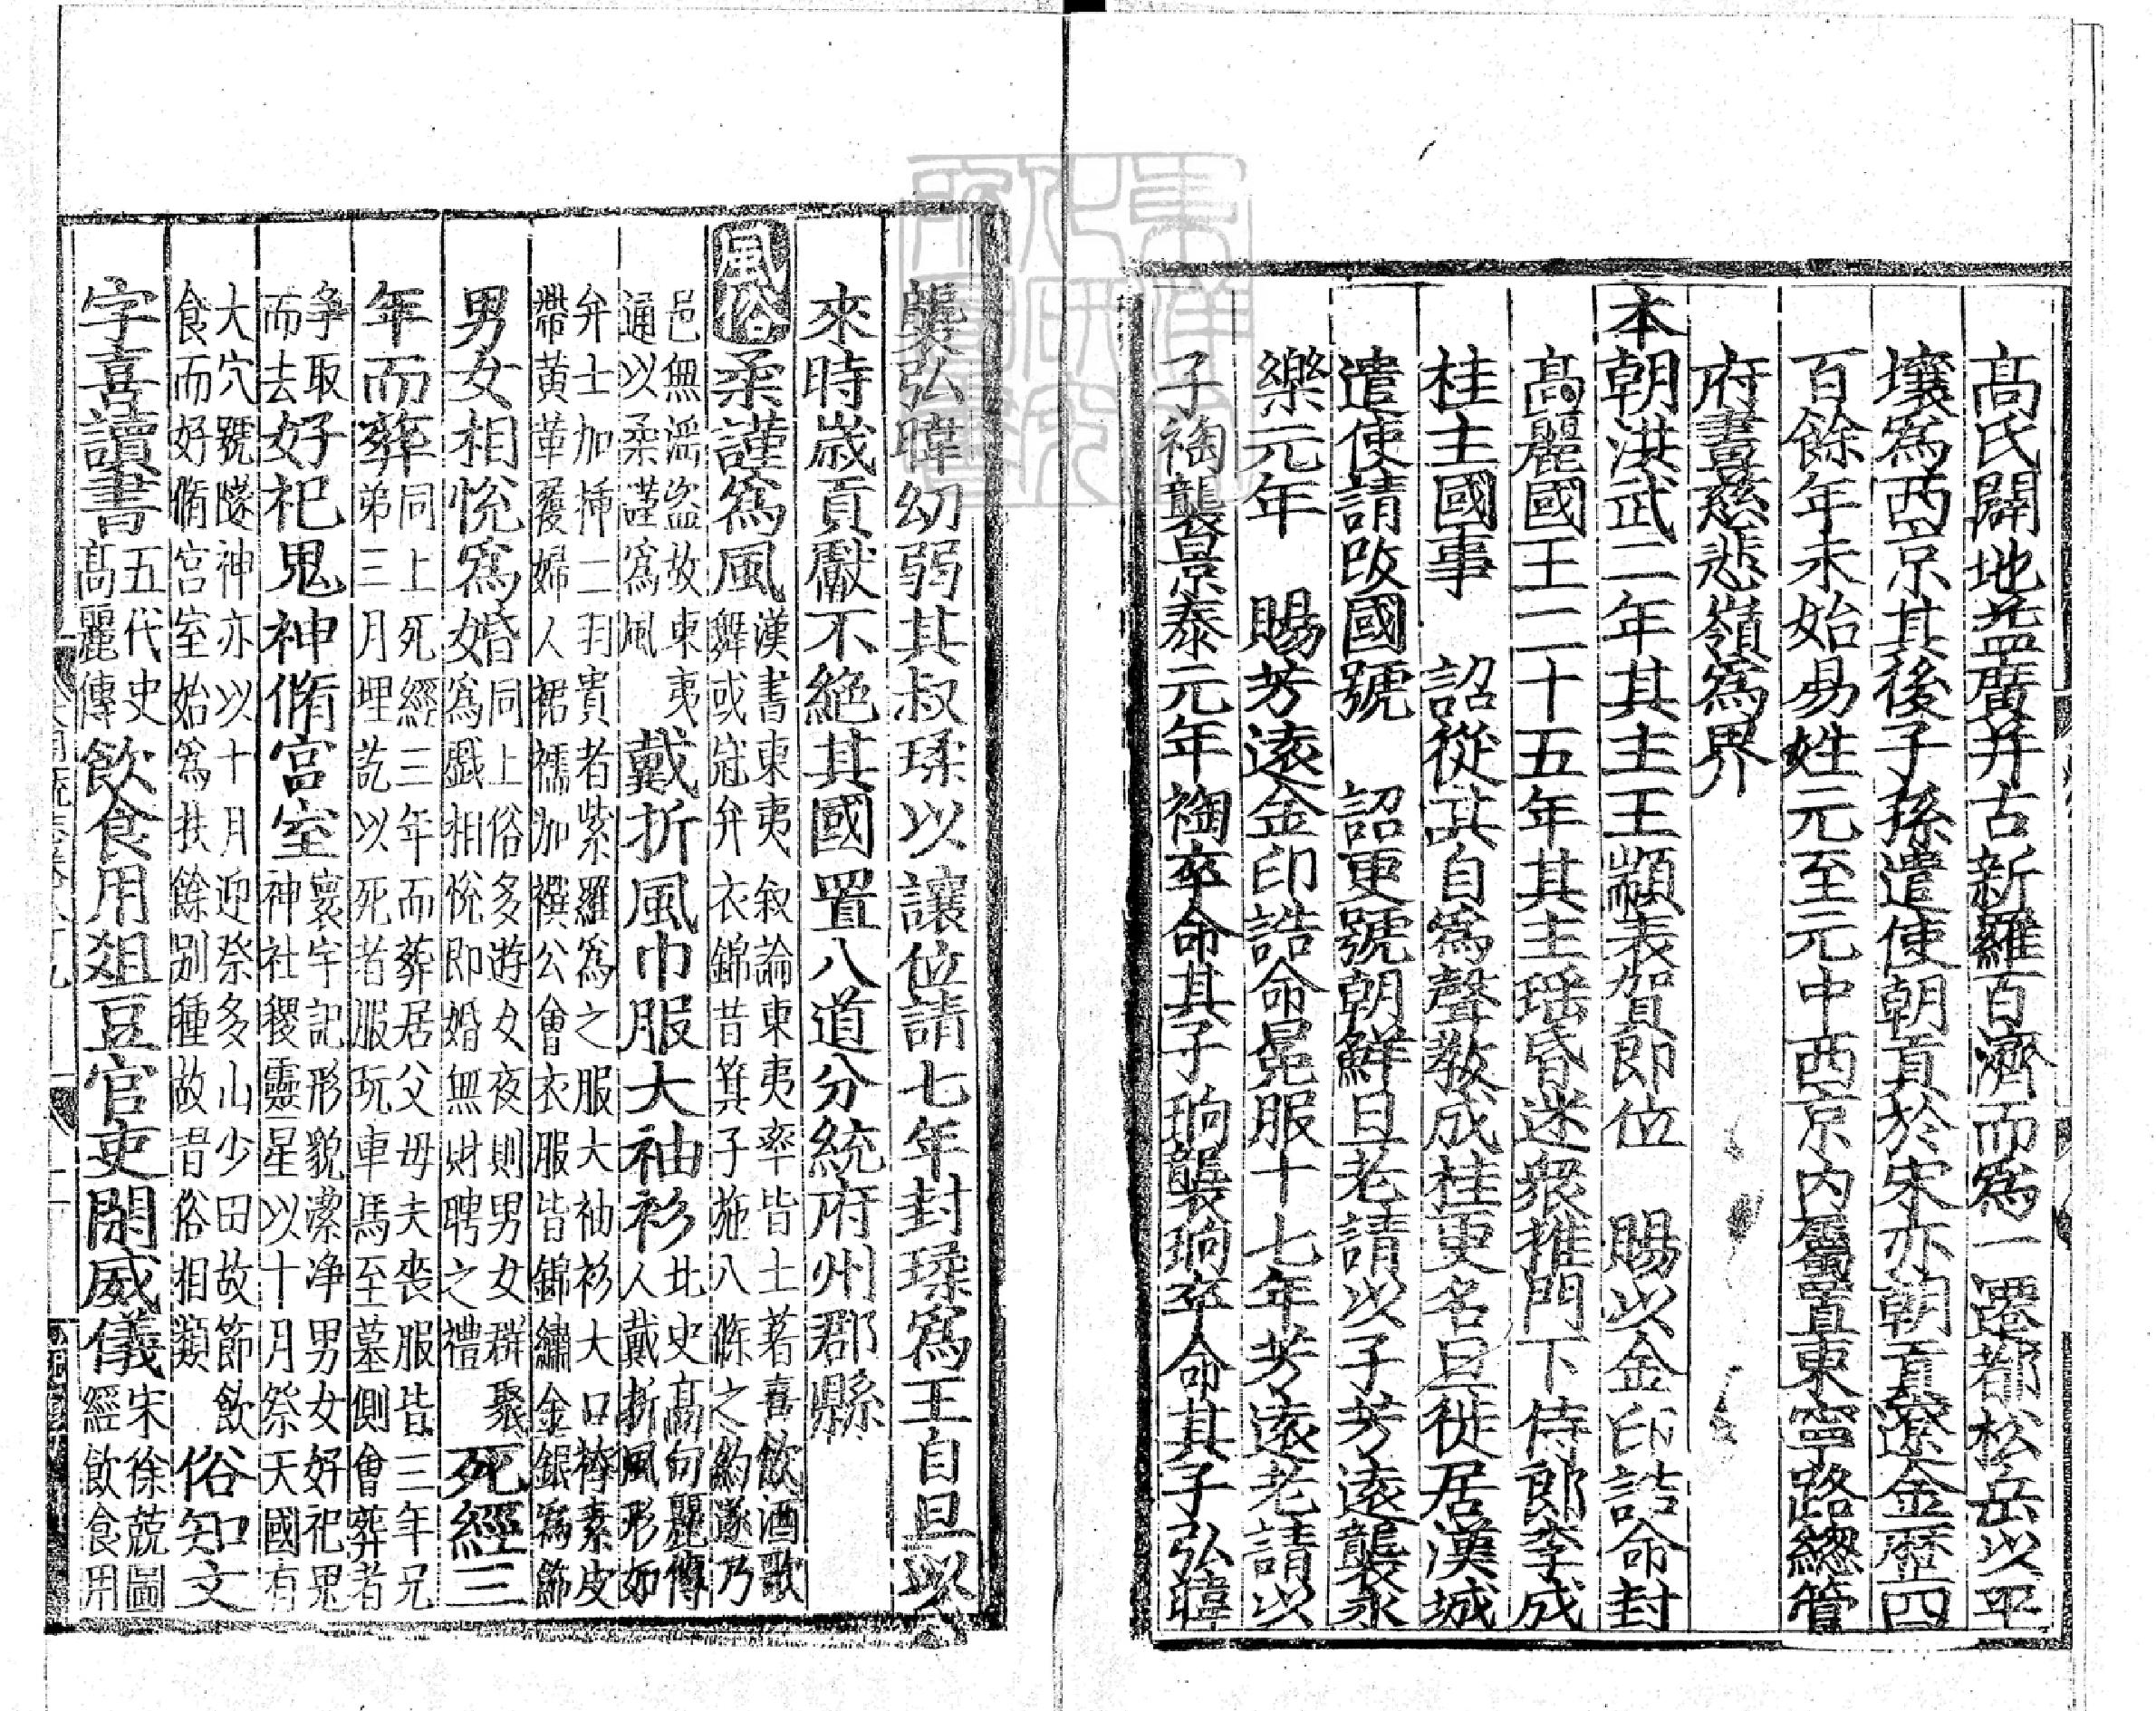 高氏闢地益廣并古新羅百濟而爲一遷都松岳以平
壤爲西京其後子孫遣使朝貢於宋亦朝貢遼金歷四
百餘年未始易姓元至元中西京内屬置東寧路緫管
府畫慈悲嶺爲界
本朝洪武二年其主王顓表賀即位　賜以金印誥命封
高麗國王二十五年其主瑶昏迷衆推門下侍郎李成
桂主國事　詔從其自爲聲敎成桂更名旦徙居漢城
遣使請改國號　詔更號朝鮮旦老請以子芳遠襲永
樂元年　賜芳遠金印誥命冕服十七年芳遠老請以
子裪襲景泰元年裪卒命其子珦襲珦卒命其子弘暐
襲弘暐幼弱其叔瑈以讓位請七年封瑈爲王自旦以
來時歲貢獻不絶其國置八道分統府州郡縣
風俗柔謹爲風漢書東夷叙論東夷率皆土著喜飲酒歌舞或冠弁衣錦昔箕子施八條之約遂乃
邑無淫盜故東夷通以柔謹爲風戴折風巾服大袖衫北史高句麗傳人戴折風形如
弁士加揷二羽貴者紫羅爲之服大袖衫大口袴素皮帶黃革履婦人裙襦加襈公會衣服皆錦繡金銀爲飾
男女相悅爲婚同上俗多遊女夜則男女群聚爲戲相悅即婚無財聘之禮死經三
年而葬同上死經三年而葬居父母夫喪服皆三年兄弟三月埋訖以死者服玩車馬至墓側會葬者
爭取而去好祀鬼神脩宮室寰宇記形貌潔净男女好祀鬼神社稷靈星以十月祭天國有
大穴號隧神亦以十月迎祭多山少田故節飲食而好脩宮室始爲扶餘别種故昔俗相類俗知文
字喜讀書五代史高麗傳飲食用俎豆官吏閑威儀宋徐兢圖經飲食用